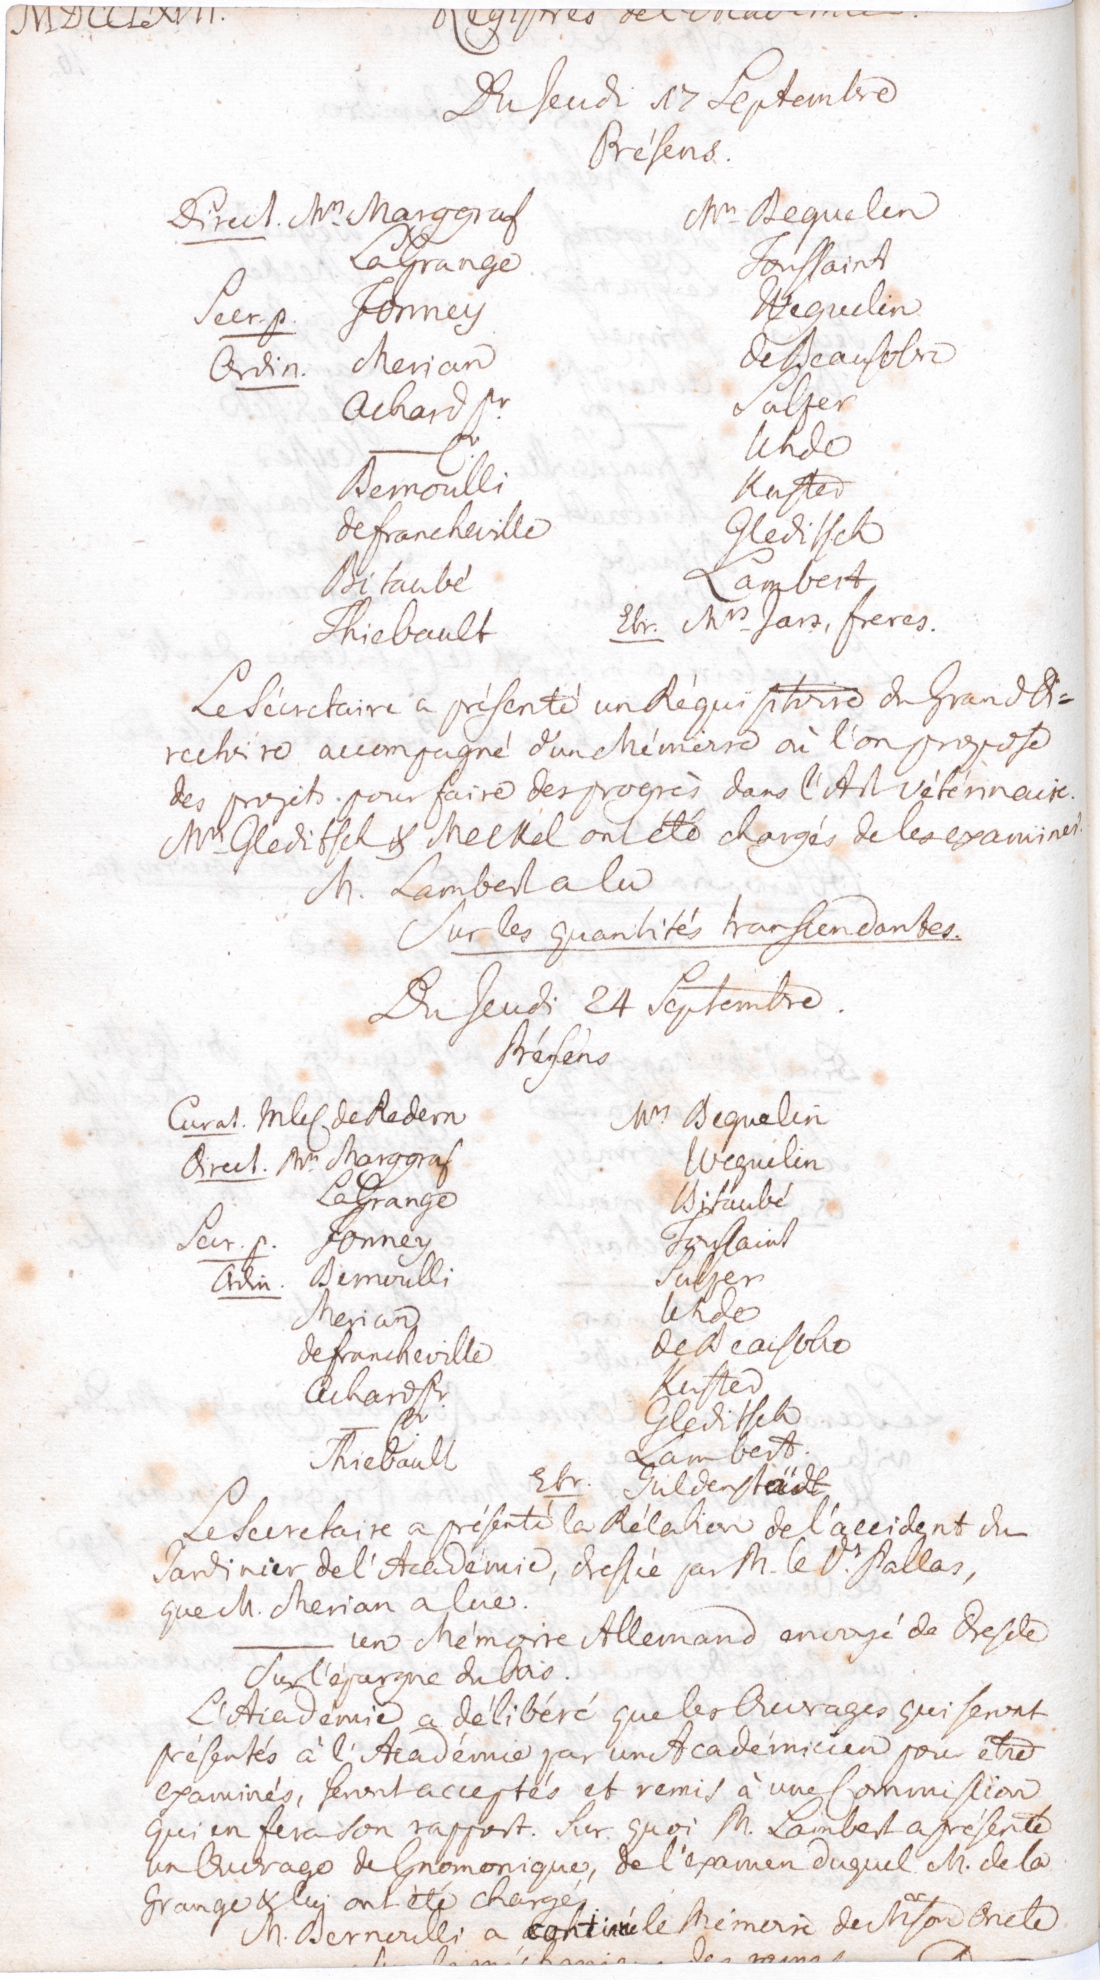 MDCCLXVII. Registres de l'Académie.
Du Jeudi 17 Septembre
Présens.
Direct. Mrs Marggraf
La Grange
Secr. p. Formey
Ordin. Merian
Achard pr.
Bernoulli
de Francheville
Bitaubé
Thiebault
Mrs Beguelin
Toussaint
Weguelin
de Beausobre
Sulzer
Uhde
Kuster
Gleditsch
Lambert
Etr. Mrs Jars, freres.
Le Sécretaire a présenté un Réquisitoire du Grand Di=
rectoire accompagné d'un Mémoire où l'on propose
des projets pour faire des progrès dans l'Art vétérinaire.
Mrs Gleditsch & Meckel ont été chargés de les examiner.
M. Lambert a lu
Sur les quantités transcendantes.
Du Jeudi 24 Septembre.
Présens
Curat. de Redern
Direct. Mrs Marggraf
La Grange
Secr. p. Formey
Ordin. Bernoulli
Merian
de Francheville
Achard pr.
Thiebault
Mrs Beguelin
Weguelin
Bitaubé
Toussaint
Sulzer
Uhde
de Beausobre
Kuster
Gleditsch
Lambert.
Etr. Guldenstädt
Le Secretaire a présenté la Rélation de l'accident du
Jardinier de l'Academie, dressée par M. le Dr. Pallas,
que M. Merian a lue.
un Mémoire Allemand envoyé de Dresde
Sur l'épargne du bois.
L'Académie a délibéré que les Ouvrages qui seront
présentés à l'Académie par un Académicien pour etre
examinés, seront acceptés et remis à une Commission
qui en fera son rapport. Sur quoi M. Lambert a présenté
un Ouvrage de Gnomonique, de l'examen duquel M. de la
Grange & luy ont été chargés
M. Bernoulli a continué le Mémoire de Mr son Oncle